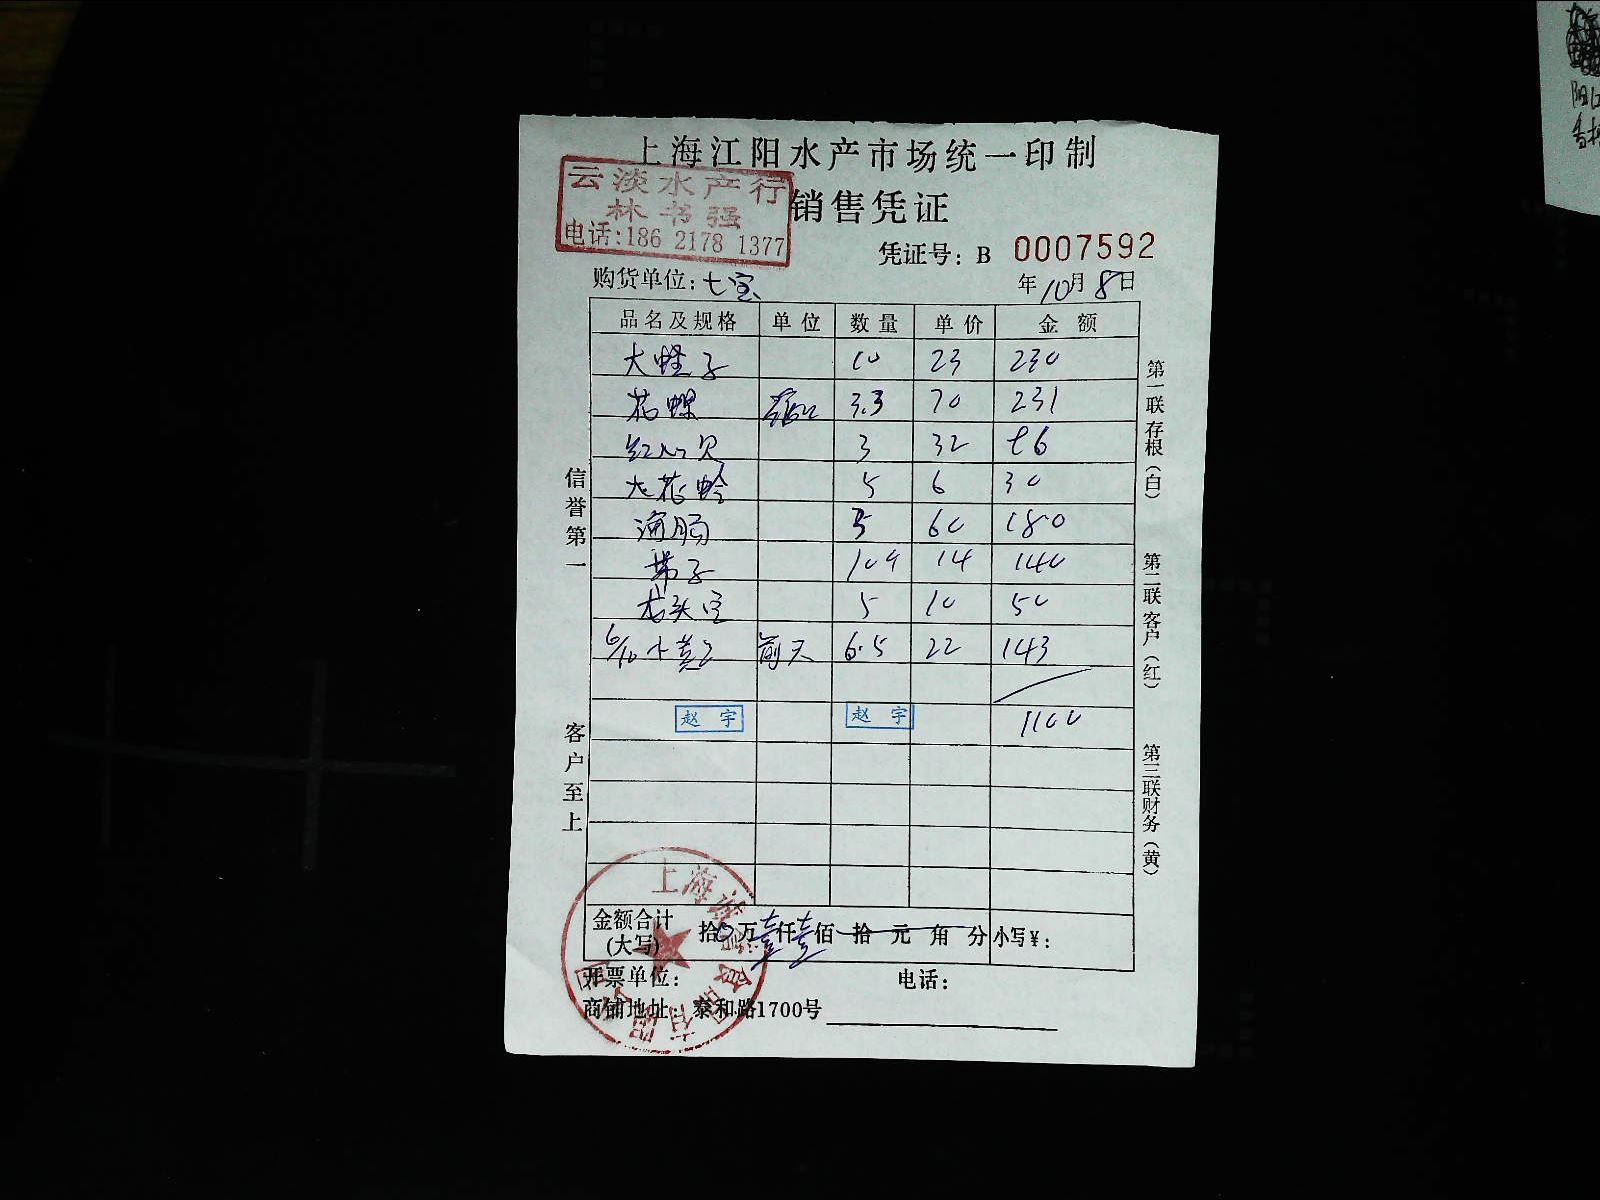 上海江阳水产市场统一印制
云淡水产行
林书强
电话:186 2178 1377
销售凭证
凭证号: B 0007592
购货单位: 七宝
年10月8日
品名及规格 单位 数量 单价 金额
大蛏子 10 23 230
花螺 3.3 70 231
红心贝 3 32 96
大花蛤 5 6 30
海肠 3 60 180
带子 10个 14 140
龙头 5 10 50
小黄 前天 6.5 22 143
赵宇 赵宇 1100
信誉第一
客户至上
第一联存根(白)
第二联客户(红)
第三联财务(黄)
金额合计
(大写) 拾 万壹仟壹佰拾元角分 小写¥:
开票单位: 电话:
商铺地址: 泰和路1700号
上海诚 食品有限公司